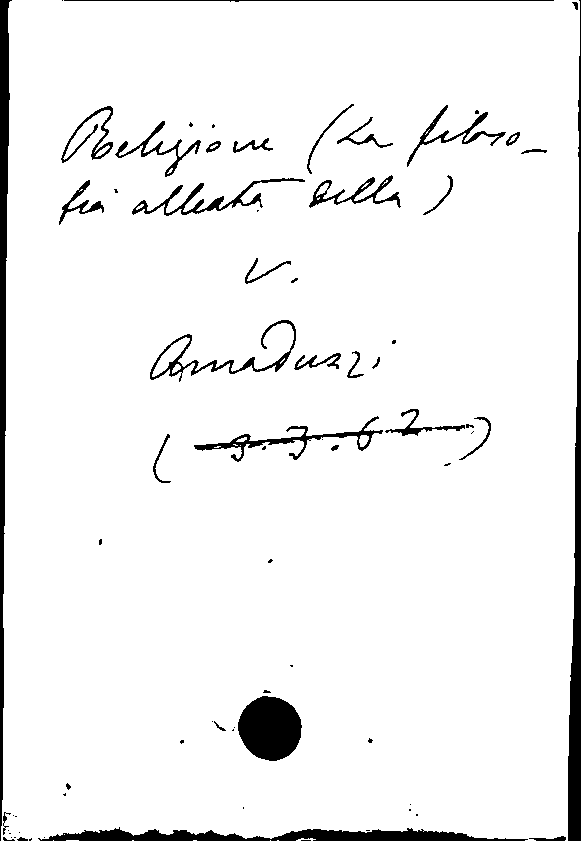 Religione (La filoso-
fia alleata della)
V.
Amaduzzi
(9.3.62)